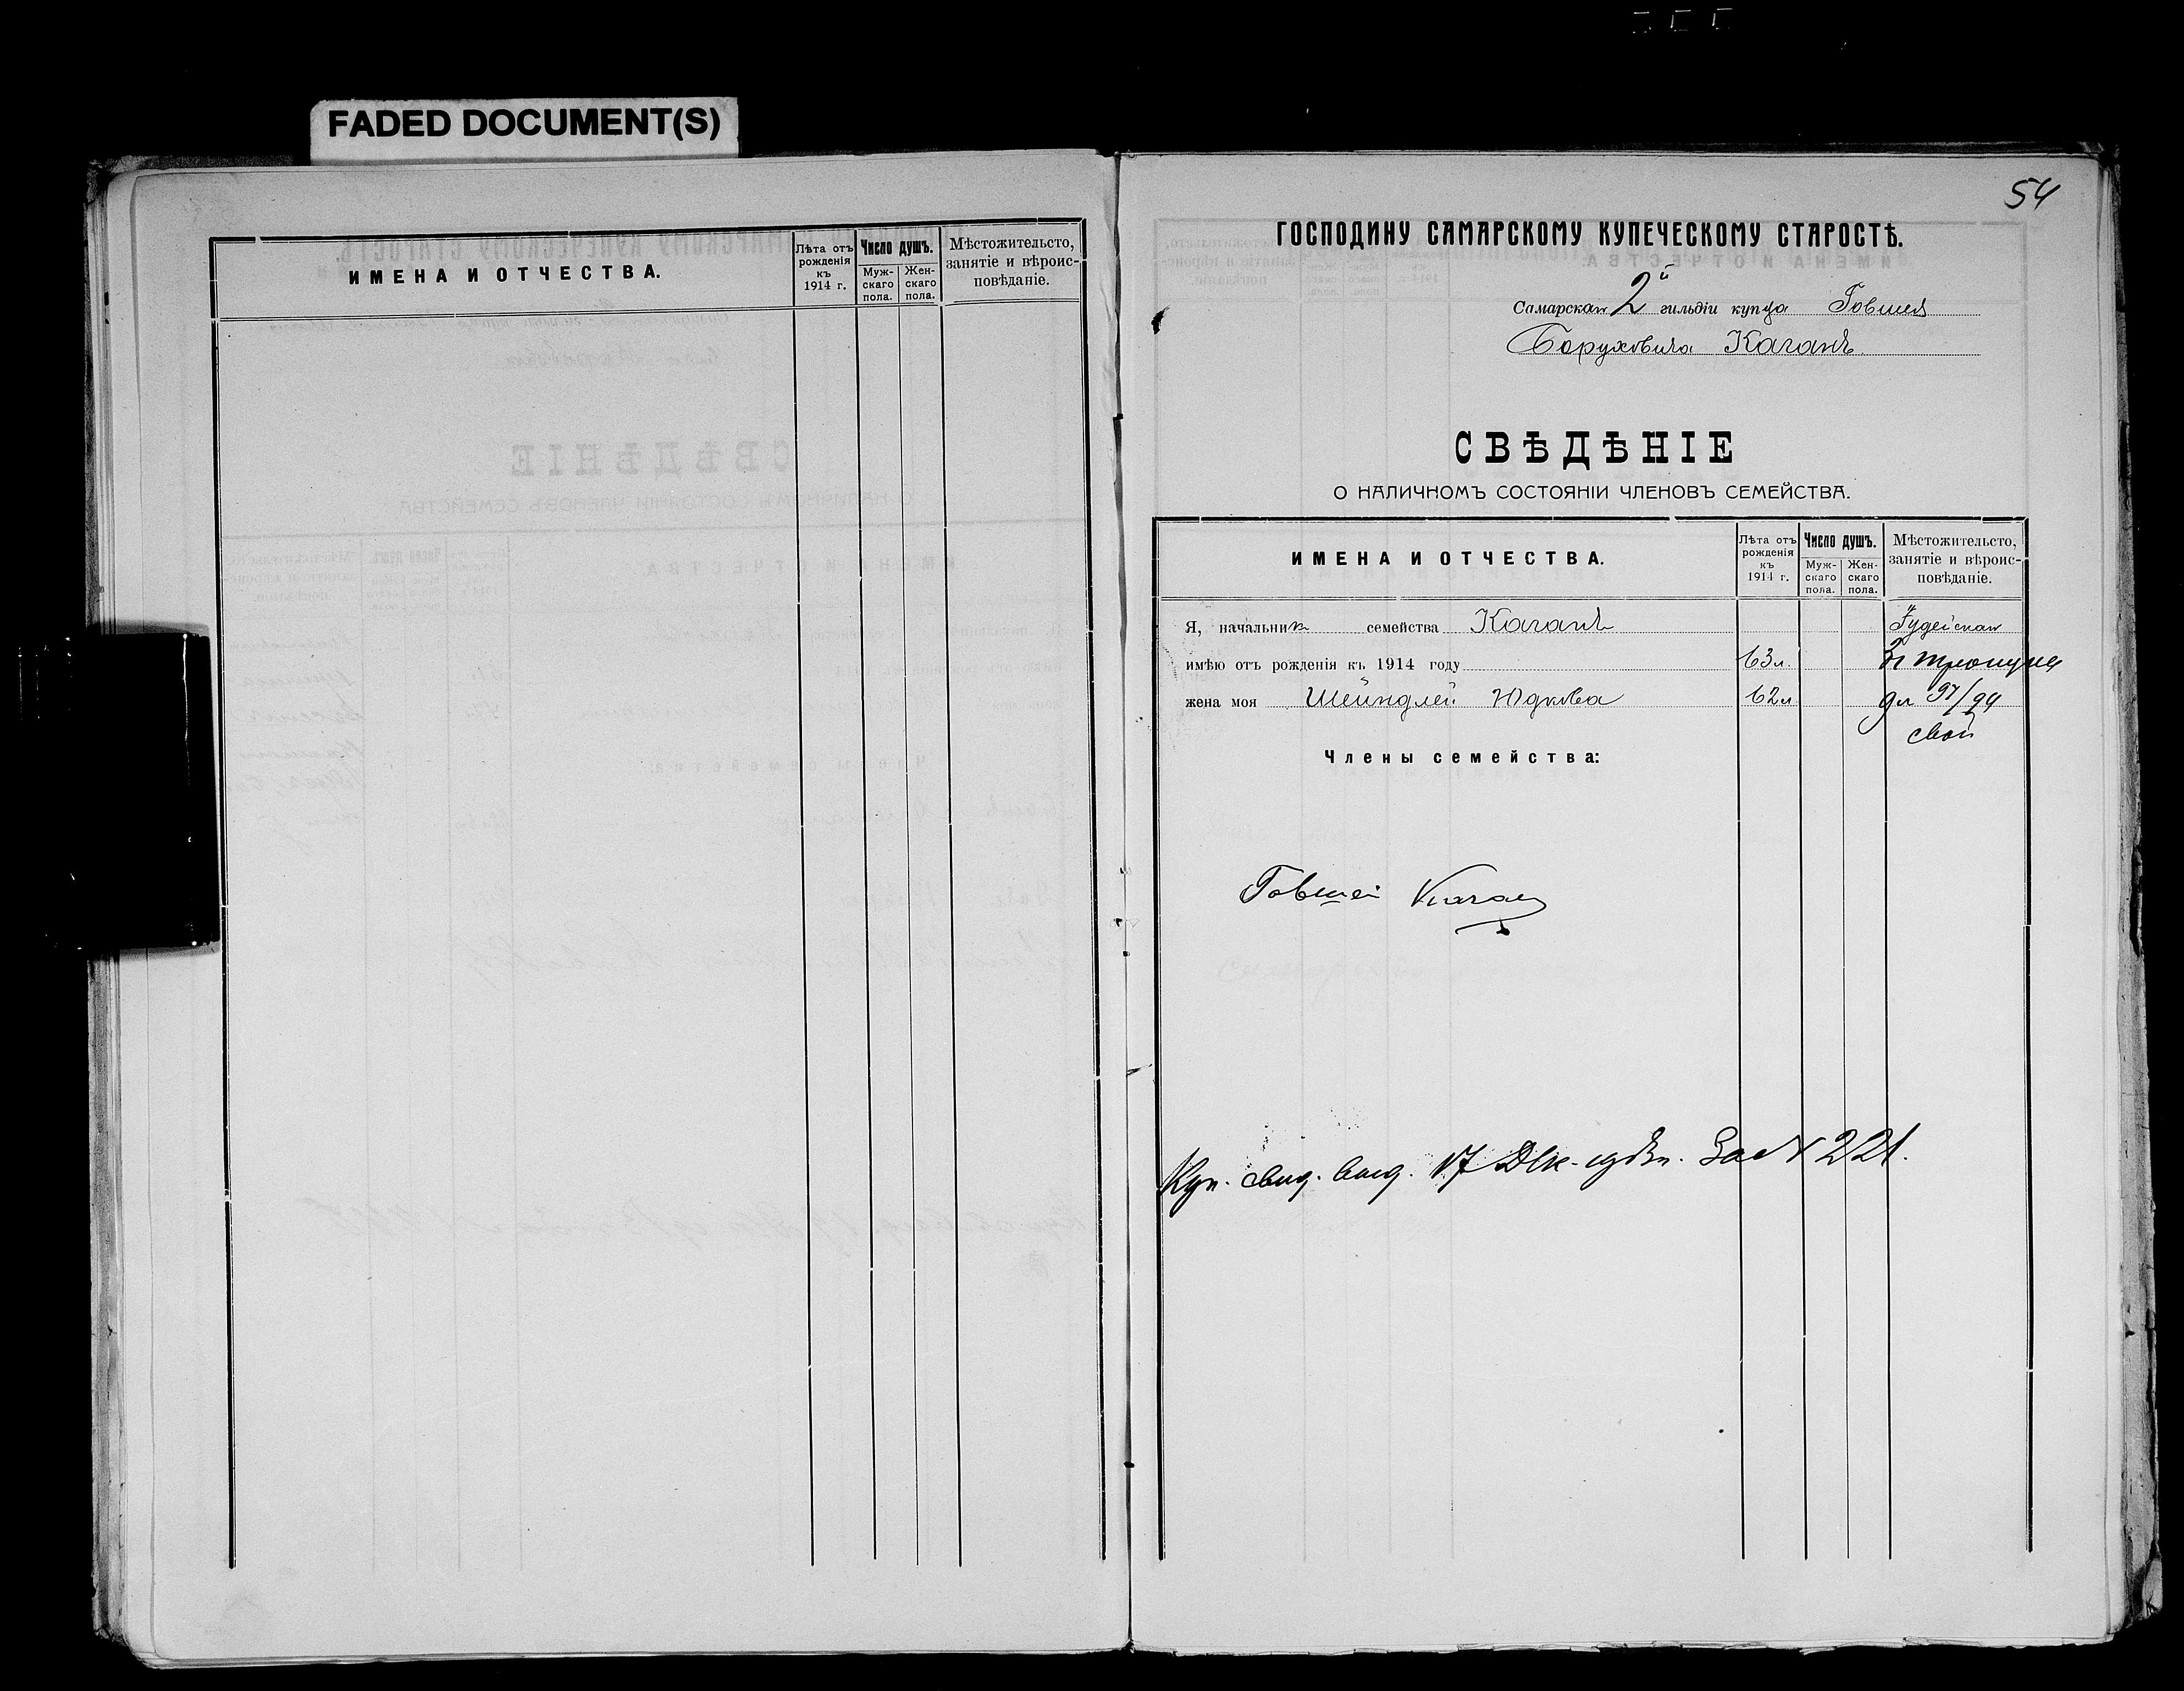 FADED DOCUMENT(S)
ИМЕНА И ОТЧЕСТВА.
Лѣта отъ рожденія къ 1914 г.
Число душъ.
Муж-скаго пола.
Жен-скаго пола.
Мѣстожительсто, занятіе и вѣроис-повѣданіе.
54
ГОСПОДИНУ САМАРСКОМУ КУПЕЧЕСКОМУ СТАРОСТѢ.
Самарскаго 2й гильдіи купца Говшея
Боруховича Каганъ
СВѢДѢНІЕ
О НАЛИЧНОМЪ СОСТОЯНІИ ЧЛЕНОВЪ СЕМЕЙСТВА.
ИМЕНА И ОТЧЕСТВА.
Лѣта отъ рожденія къ 1914 г.
Число душъ.
Муж-скаго пола.
Жен-скаго пола.
Мѣстожительсто, занятіе и вѣроис-повѣданіе.
Я, начальник семейства Каганъ Іудейская
имѣю отъ рожденія къ 1914 году 63 л.
жена моя Шейндлей Юдкова 62 л д 97/99
свой
Члены семейства:
Говшей Каган
Куп. свид. выд. 17 Дек. 1913 г. За № 221.